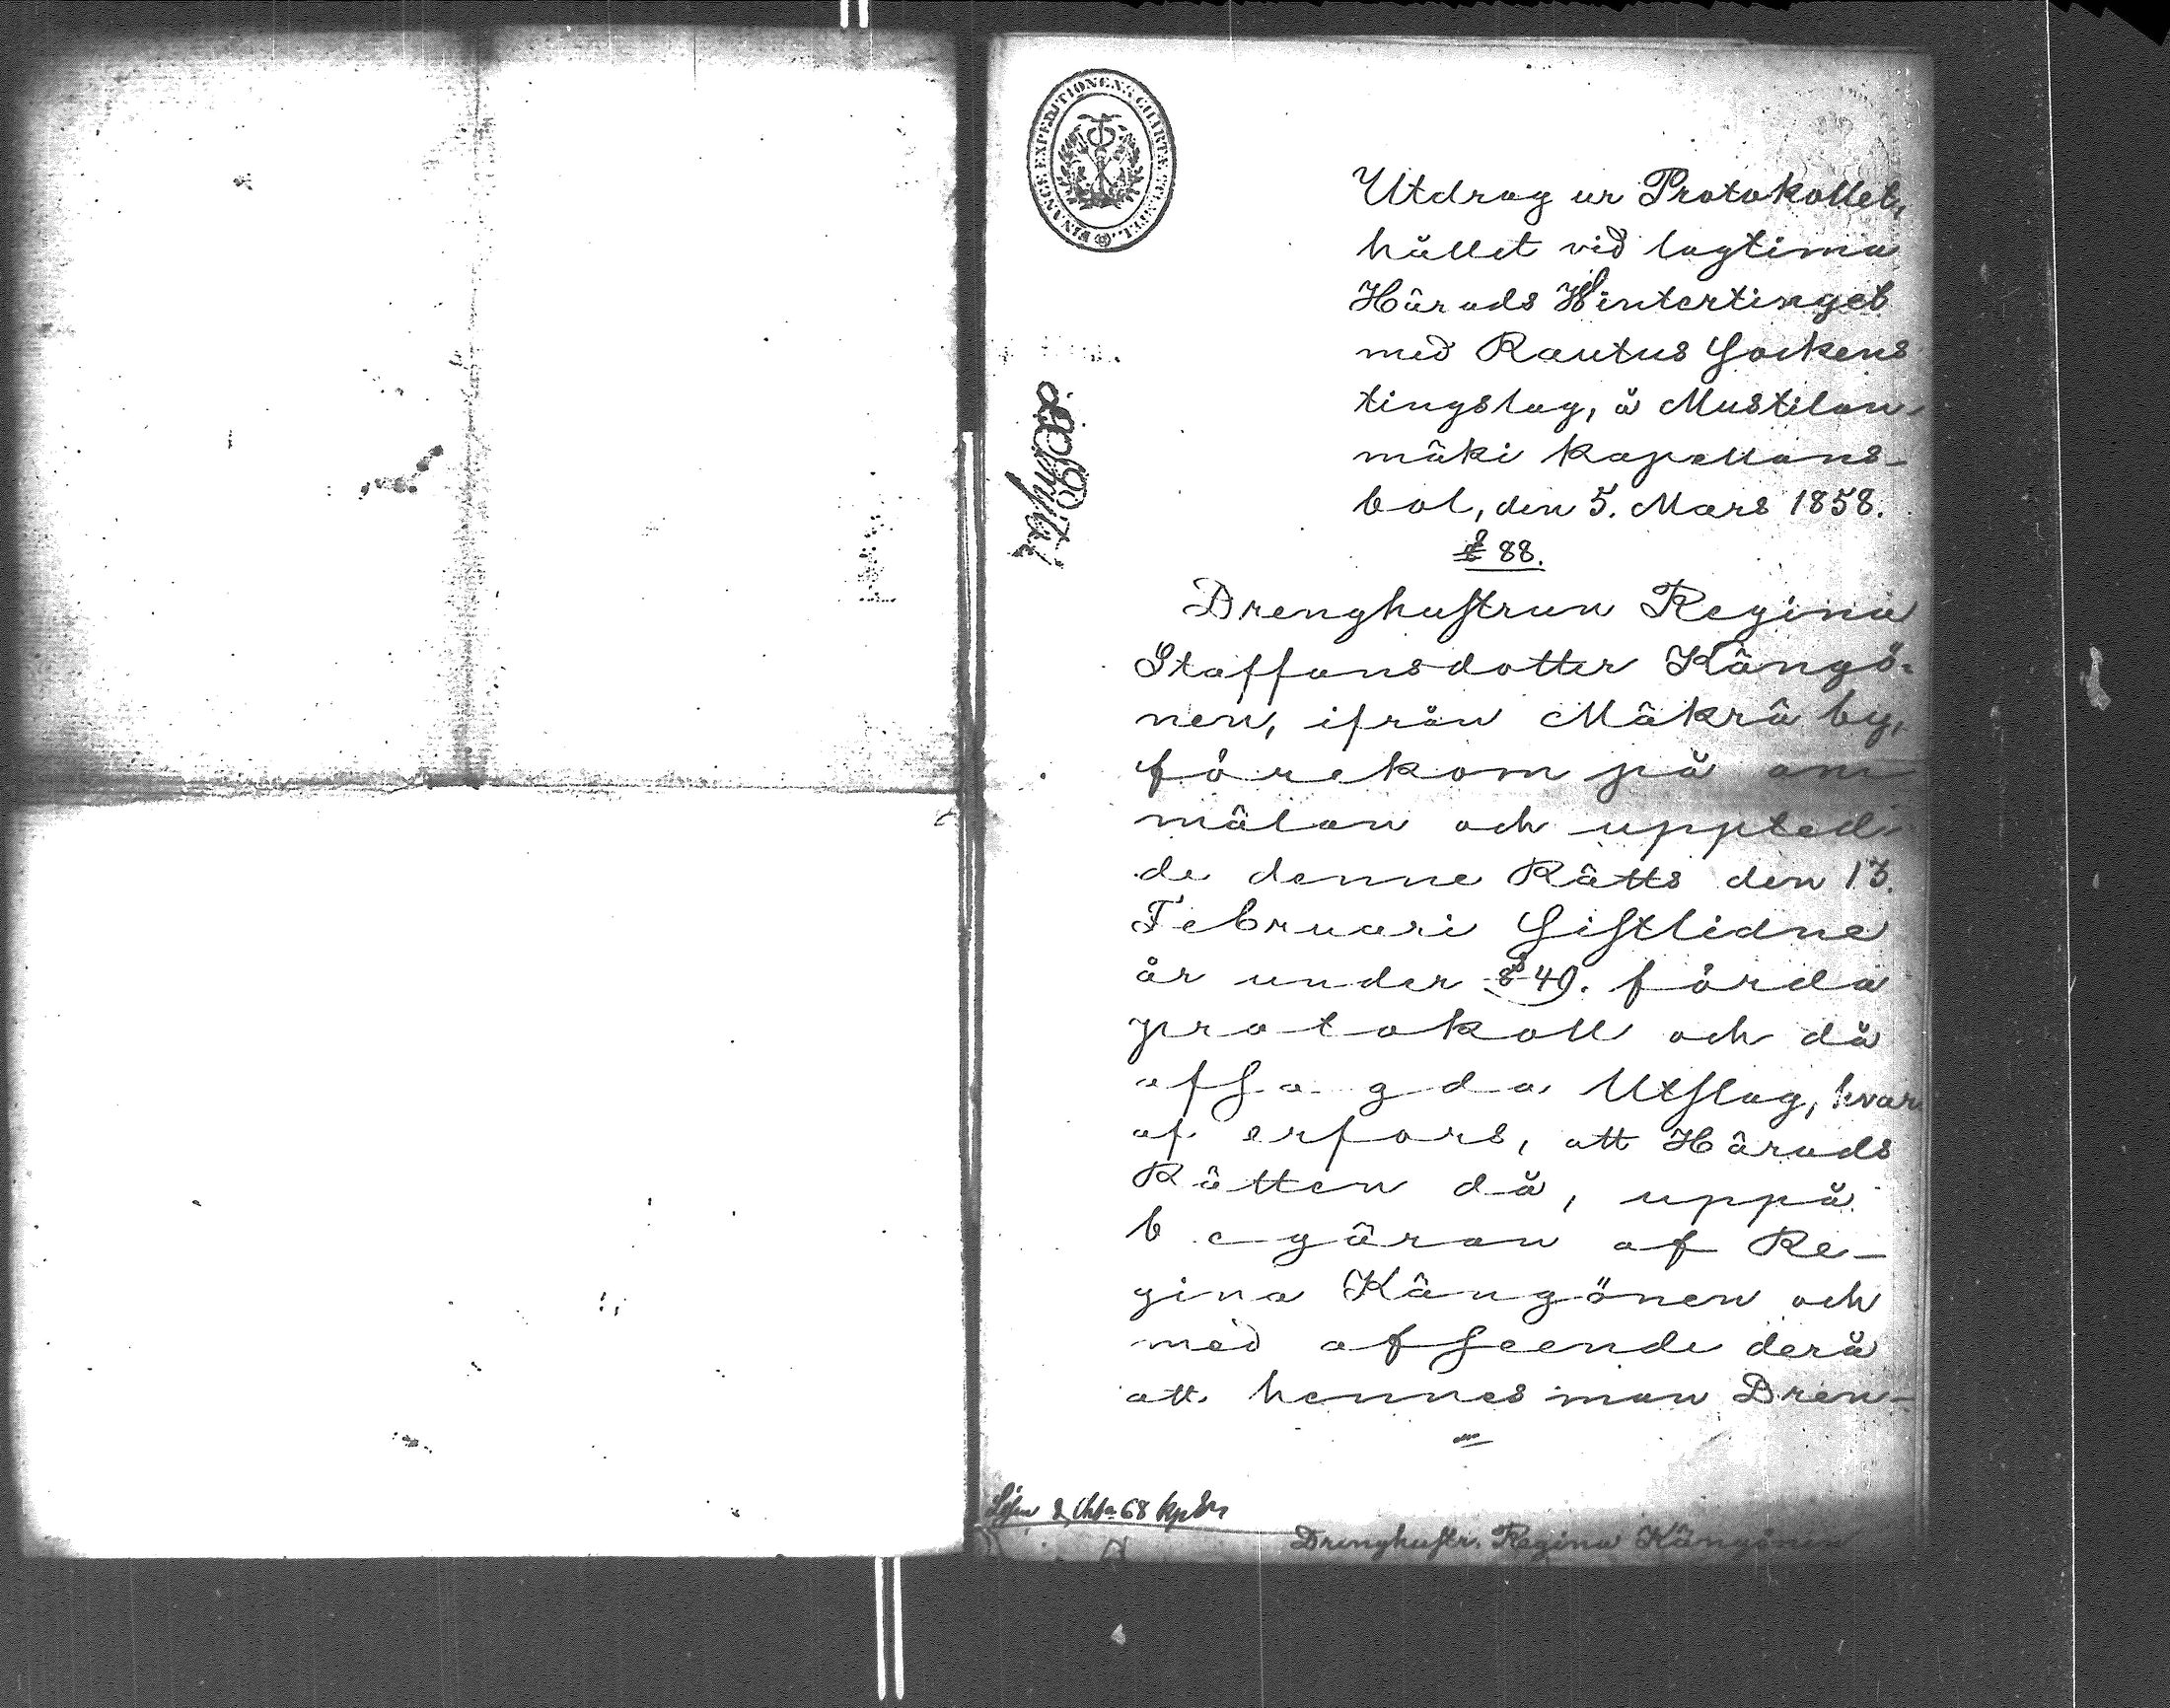 FINANCE EXPEDITIONENS CHARTÆ STÄMPEL.
Utdrag ur Protokollet,
hållet vid lagtima
Härads Wintertinget
med Rautus Sockens
tingslag, å Mustilan-
mäki kapellans-
bol, den 5. Mars 1858.
§ 88.
Drenghustrun Regina
Staffansdotter Kängö-
nen, ifrån Mäkrä by,
förekom på an-
mälan och uppted-
de denne Rätts den 13.
Februari sistlidne
år under § 40. förda
protokoll och då
afsagda Utslag, hvar
af erfors, att Härads
Rätten då, uppå
begäran af Re-
gina Kängönen och
med afseende derå
att hennes man Dren-
Lösen & Cha 68 kop Sr
Drenghustr. Regina Kängönen